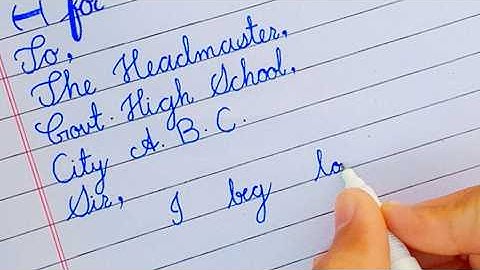 for
To,
The Headmaster,
Govt. High School,
City A. B. C.
Sir,
I beg to